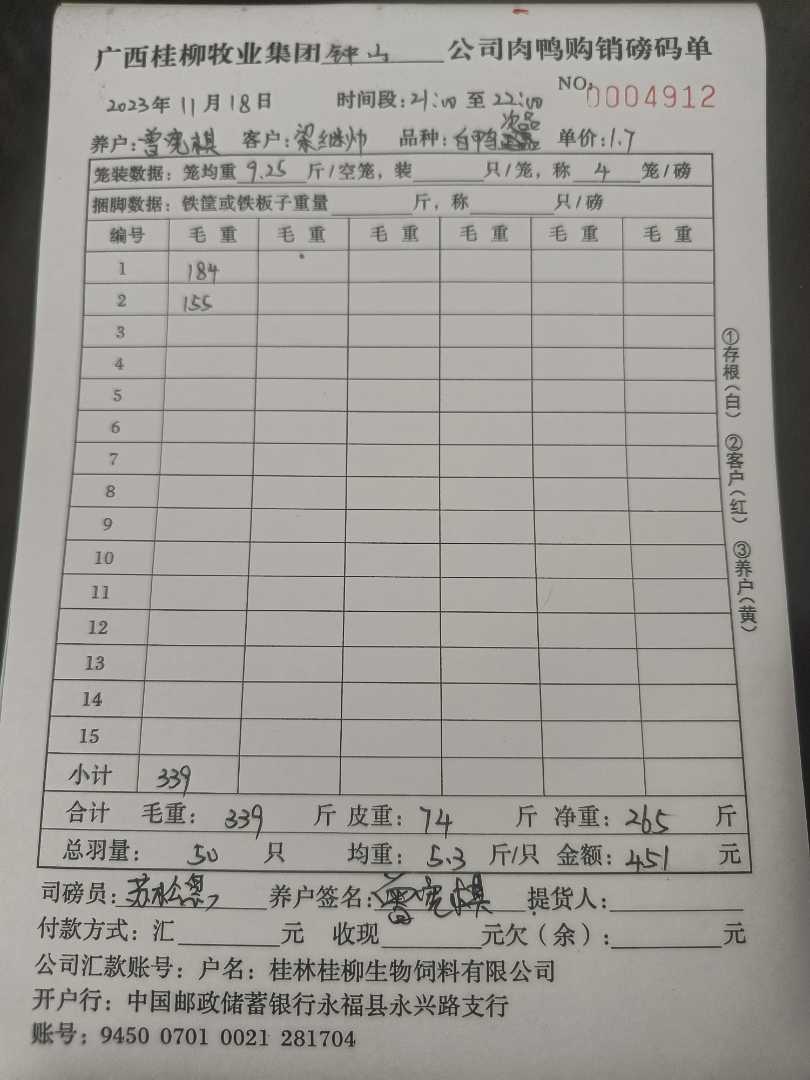 广西桂柳牧业集团钟山公司肉鸭购销磅码单
NO:0004912
2023年11月18日 时间段:21:00至22:00
次品
养户:曾宪棋 客户:梁继帅 品种:白鸭 单价:1.7
笼装数据:笼均重9.25斤/空笼,装___只/笼,称4笼/磅
捆脚数据:铁筐或铁板子重量___斤,称___只/磅
编号 毛重 毛重 毛重 毛重 毛重 毛重
1 184
2 155
3
4
5
6
7
8
9
10
11
12
13
14
15
小计 339
合计 毛重:339斤 皮重:74斤 净重:265斤
总羽量:50只 均重:5.3斤/只 金额:451元
司磅员:苏松 养户签名:曾宪棋 提货人:
付款方式:汇___元 收现___元欠(余):___元
公司汇款账号:户名:桂林桂柳生物饲料有限公司
开户行:中国邮政储蓄银行永福县永兴路支行
账号:9450 0701 0021 281704
①存根(白) ②客户(红) ③养户(黄)